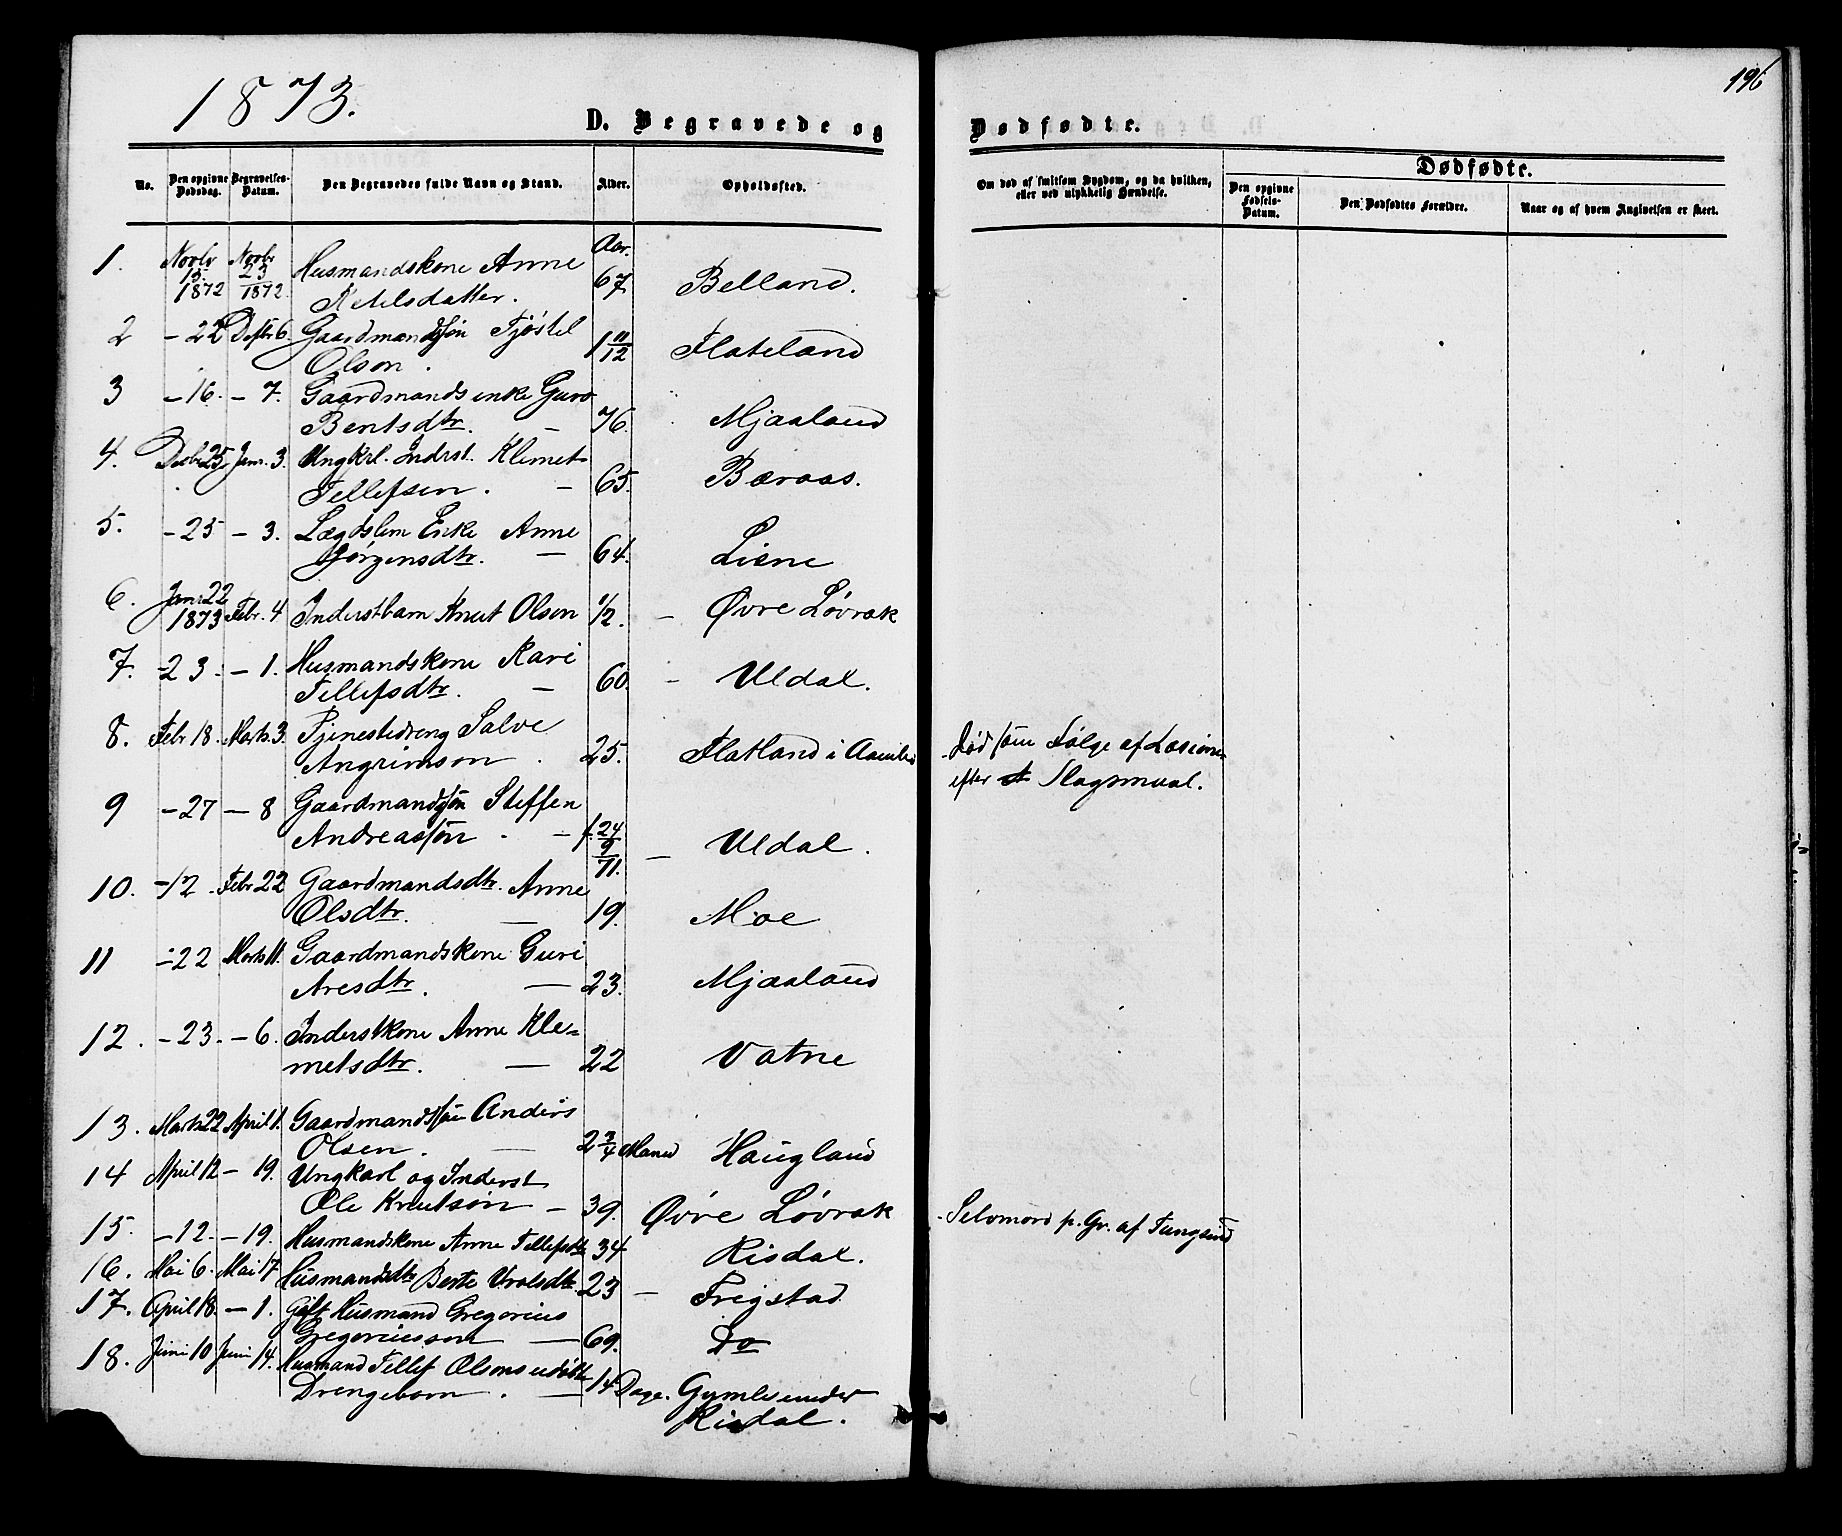 1873.
196
D. Begravede og Dødfødte.
No.
Den opgivne Dødsdag.
Begravelses-Datum.
Den Begravedes fulde Navn og Stand.
Alder.
Opholdssted.
Om død af smitsom Sygdom, og da hvilken,
eller ved ulykkelig Hændelse.
Dødfødte.
Den opgivne Fødsels-Datum.
Den Dødfødtes Forældre.
Naar og af hvem Angivelsen er skeet.
Aar.
1. Novbr 15. 1872 Novbr 23 1872. Husmandskone Anne
Ketilsdatter. 67 Belland.
2 - 22 Desbr 6. Gaardmandssøn Tjøstel
Olson. 1 11/12 Flateland
3 - 16. - 7. Gaardmandsenke Guro
Bentsdtr. - 76. Mjaaland
4. Decbr 25 Janr. 3. Ungkrl. Inderst. Klemet
Tellefsen. - 65. Bæraas.
5. - 25 - 3. Lægdslem Enke Anne
Jörgensdtr. - 64. Liene
6. Janr 22 1873 Febr. 4 Inderstbarn Knut Olson 1/2. - Øvre Løvrak
7. - 23. - 1. Husmandskone Kari
Tellefsdtr. - 60. - Uldal.
8. Febr 18. Marts. 3. Tjenestedreng Salve
Angrimson. 25. Flatland i Aamli
Død som Følge af Læsione
efter Slagsmaal.
9 - 27 - 8 Gaardmandssøn Steffen
Andreassøn. - f. 24/9 71. - Uldal.
10. - 12. Febr 22 Gaardmandsdtr. Anne
Olsdtr. - 19. Moe
11 - 22 Marts 11. Gaardmandskone Guri
Aresdtr. - 23. Mjaaland
12. - 23. - 6. Inderstkone Anne Kle=
metsdtr. - 22 Vatne
13. Marts 22 April 1. Gaardmandssøn Anders
Olsen. - 2 3/4 Maned Haugland
14 April 12 - 19. Ungkarl og Inderst
Ole Knutsøn - 39. Øvre Løvrak
Selvmord p. Gr. af Tungsind
15. - 12. - 19. Husmandskone Anne Tellefsdtr 34 Risdal.
16. Mai 6. Mai 17 Husmandsdtr Berte Uvalsdtr. 23 - Frigstad
17. April 18. - 1. Gift Husmand Gregorius
Gregoriusson - 69. Do
18. Juni 10 Juni 14. Husmand Tellef Olsons udøbte
Drengebarn. - 14 Dage. Gymles under
Risdal.